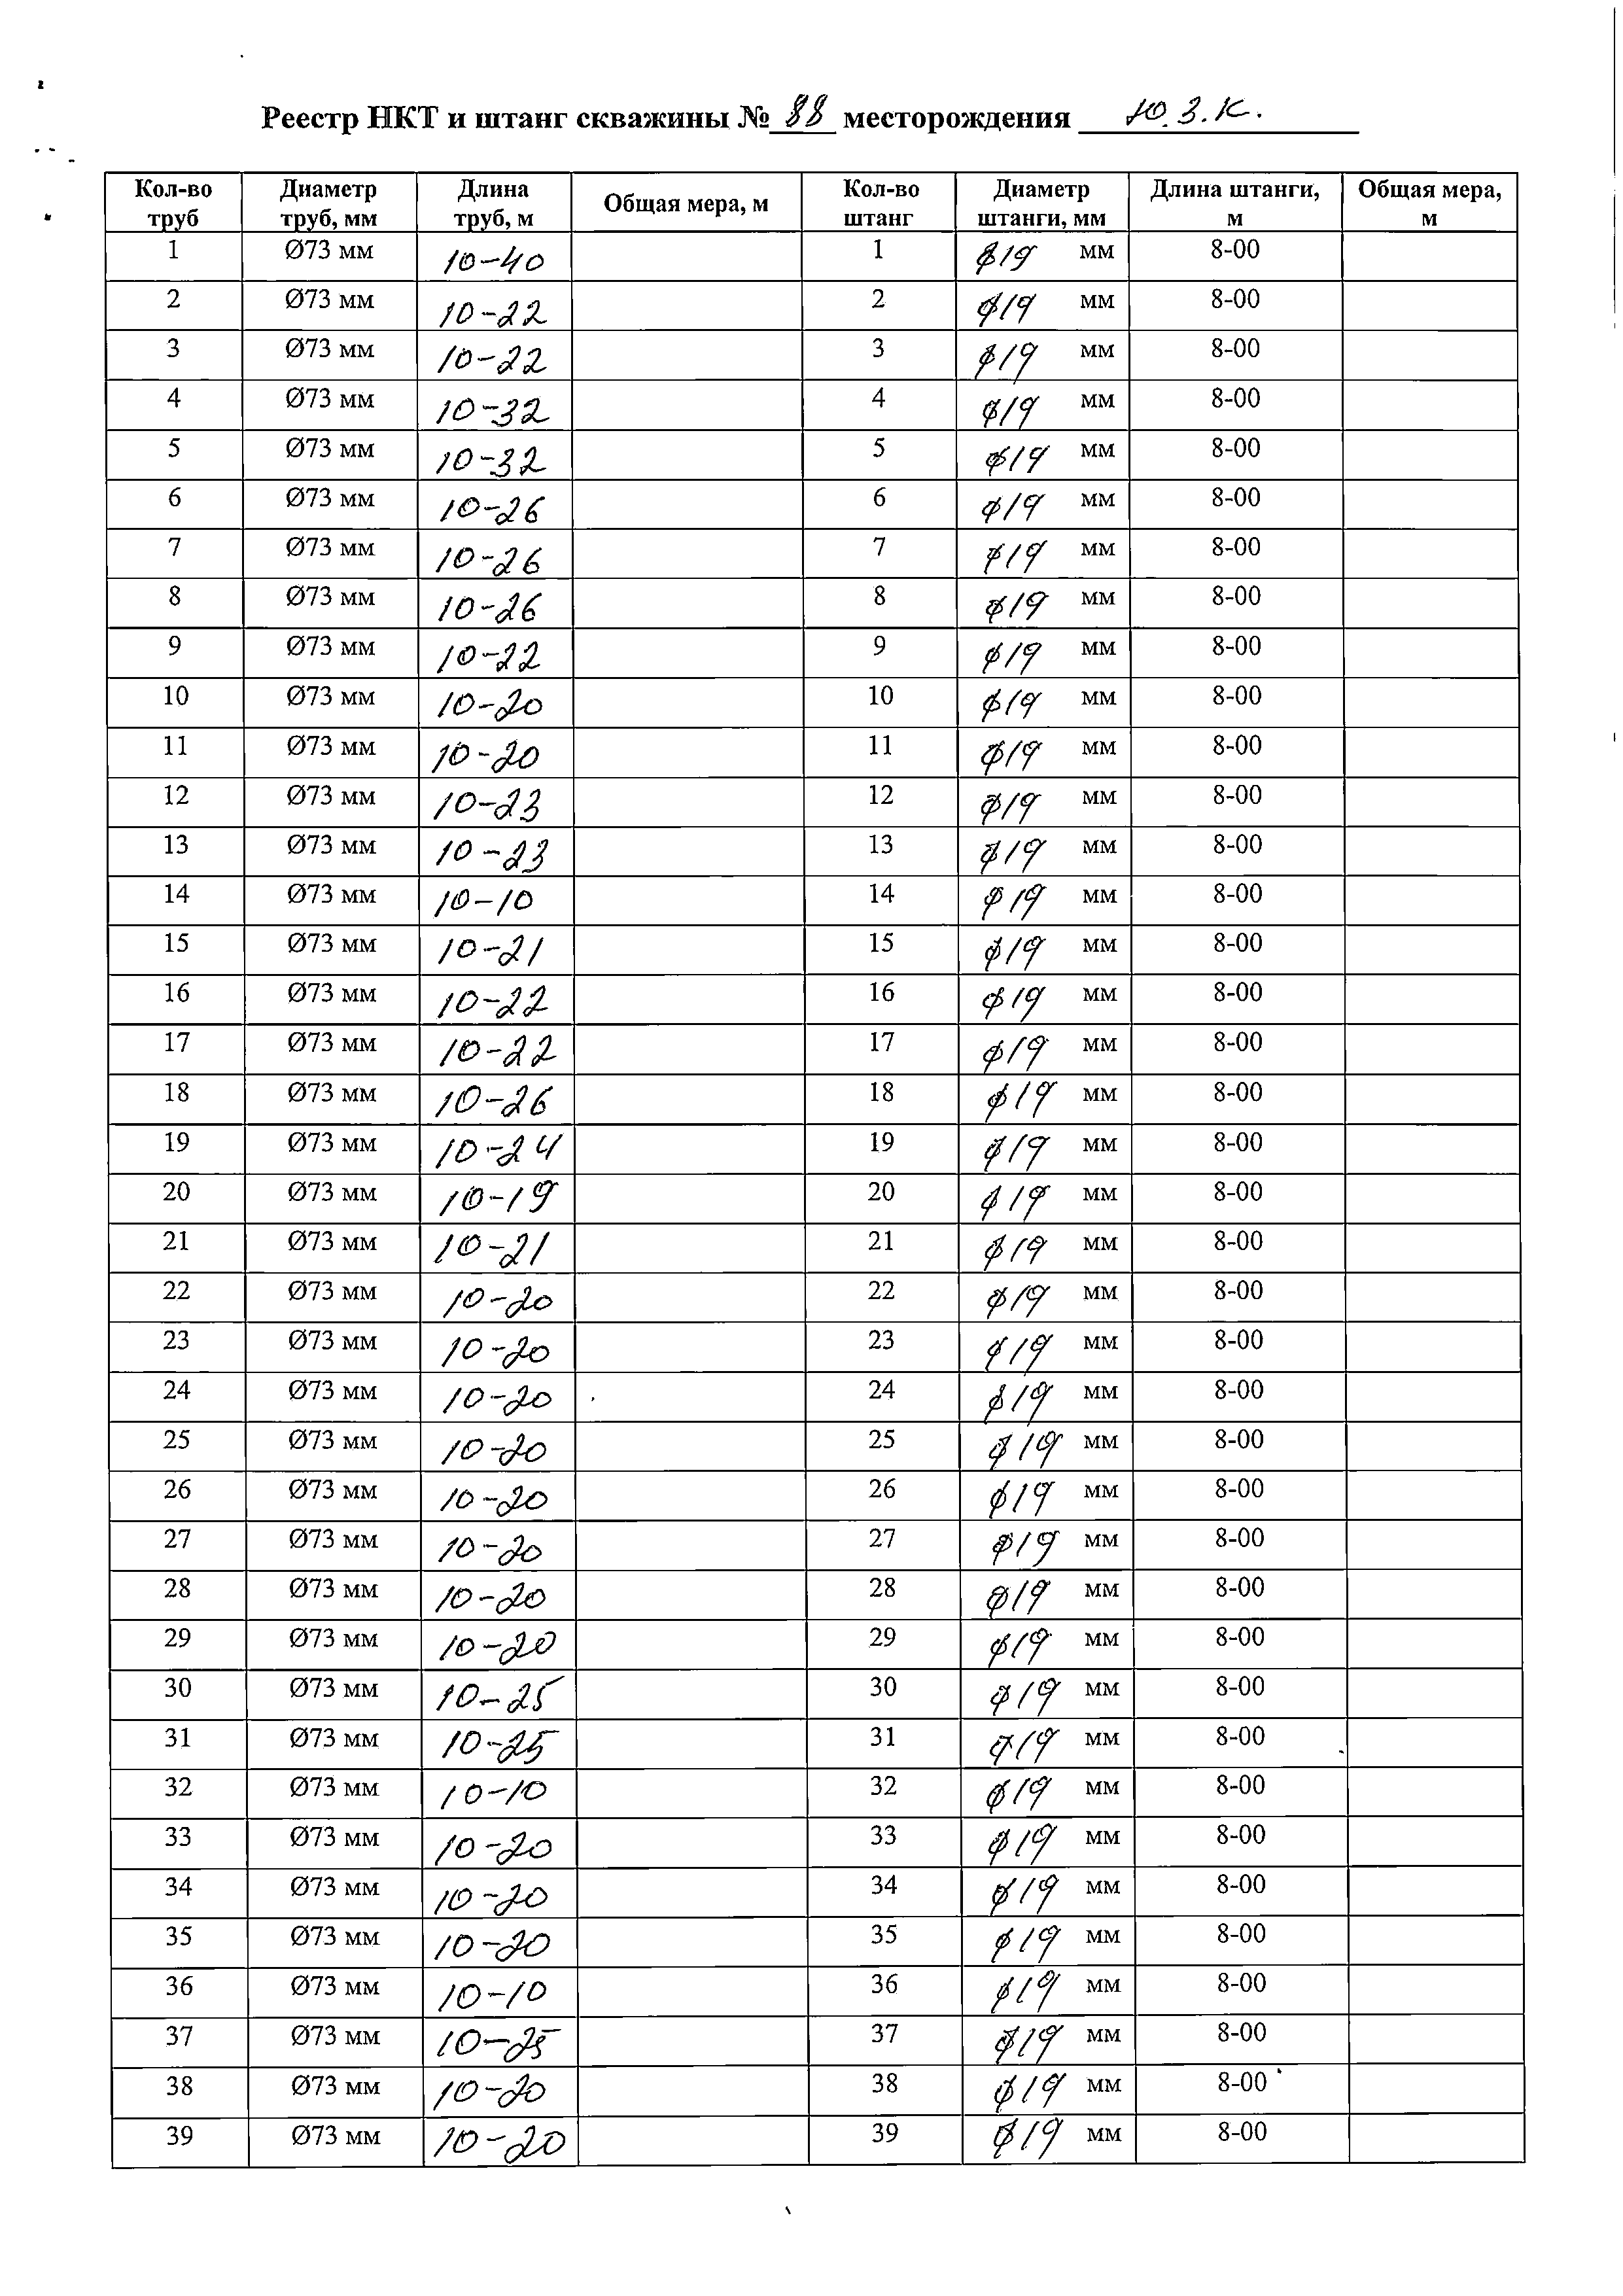 Реестр НКТ и штанг скважины № 88 месторождения Ю.З.К.
Кол-во труб Диаметр труб, мм Длина труб, м Общая мера, м Кол-во штанг Диаметр штанги, мм Длина штанги, м Общая мера, м
1 Ø73 мм 10-40 1 ø19 мм 8-00
2 Ø73 мм 10-22 2 ø19 мм 8-00
3 Ø73 мм 10-22 3 ø19 мм 8-00
4 Ø73 мм 10-32 4 ø19 мм 8-00
5 Ø73 мм 10-32 5 ø19 мм 8-00
6 Ø73 мм 10-26 6 ø19 мм 8-00
7 Ø73 мм 10-26 7 ø19 мм 8-00
8 Ø73 мм 10-26 8 ø19 мм 8-00
9 Ø73 мм 10-22 9 ø19 мм 8-00
10 Ø73 мм 10-20 10 ø19 мм 8-00
11 Ø73 мм 10-20 11 ø19 мм 8-00
12 Ø73 мм 10-23 12 ø19 мм 8-00
13 Ø73 мм 10-23 13 ø19 мм 8-00
14 Ø73 мм 10-10 14 ø19 мм 8-00
15 Ø73 мм 10-21 15 ø19 мм 8-00
16 Ø73 мм 10-22 16 ø19 мм 8-00
17 Ø73 мм 10-22 17 ø19 мм 8-00
18 Ø73 мм 10-26 18 ø19 мм 8-00
19 Ø73 мм 10-24 19 ø19 мм 8-00
20 Ø73 мм 10-19 20 ø19 мм 8-00
21 Ø73 мм 10-21 21 ø19 мм 8-00
22 Ø73 мм 10-20 22 ø19 мм 8-00
23 Ø73 мм 10-20 23 ø19 мм 8-00
24 Ø73 мм 10-20 24 ø19 мм 8-00
25 Ø73 мм 10-20 25 ø19 мм 8-00
26 Ø73 мм 10-20 26 ø19 мм 8-00
27 Ø73 мм 10-20 27 ø19 мм 8-00
28 Ø73 мм 10-20 28 ø19 мм 8-00
29 Ø73 мм 10-20 29 ø19 мм 8-00
30 Ø73 мм 10-25 30 ø19 мм 8-00
31 Ø73 мм 10-25 31 ø19 мм 8-00
32 Ø73 мм 10-10 32 ø19 мм 8-00
33 Ø73 мм 10-20 33 ø19 мм 8-00
34 Ø73 мм 10-20 34 ø19 мм 8-00
35 Ø73 мм 10-20 35 ø19 мм 8-00
36 Ø73 мм 10-10 36 ø19 мм 8-00
37 Ø73 мм 10-25 37 ø19 мм 8-00
38 Ø73 мм 10-20 38 ø19 мм 8-00
39 Ø73 мм 10-20 39 ø19 мм 8-00